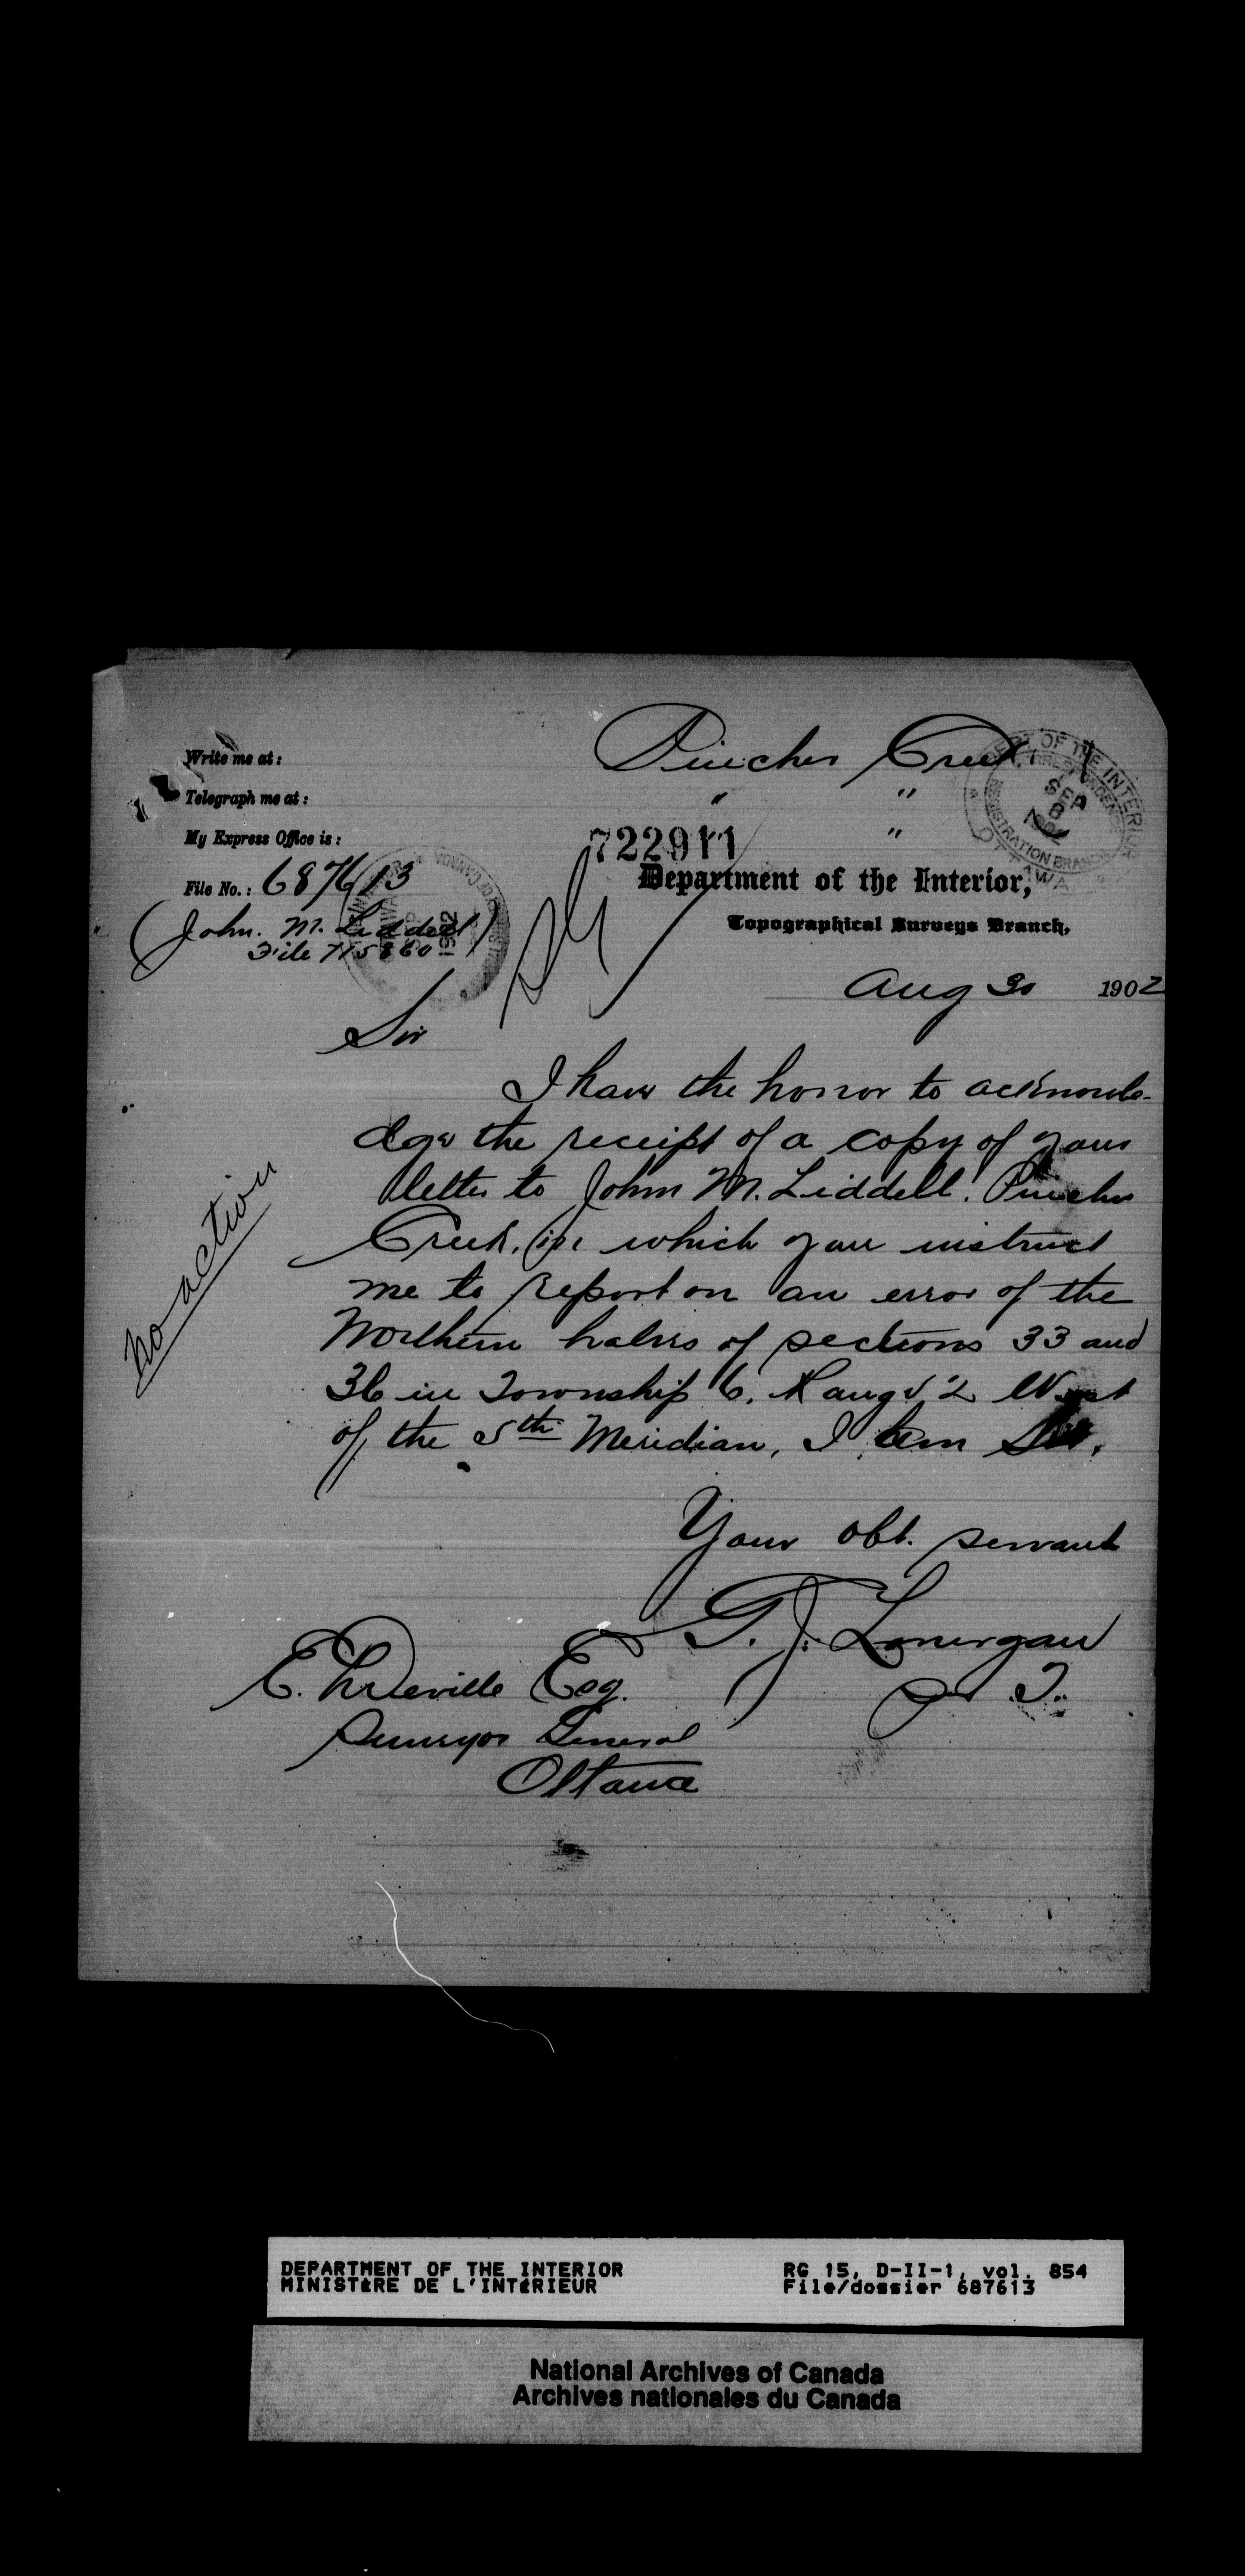 Write me at: Pincher Creek
Telegraph me at: " "
My Express Office is: "
722911
File No.: 687613
(John. M. Liddell)
File 715860
Department of the Interior,
Topographical Surveys Branch,
DEPT OF THE INTERIOR
SEP 8 1902
Aug 30 1902
Sir
I have the honor to acknowle-
dge the receipt of a copy of your
letter to John M. Liddell. Pincher
Creek, in which you instruct
me to report on an error of the
Northern halves of sections 33 and
36 in Township 6, Range 2 West
of the 5th Meridian, I am Sir,
no action
Your obt. servant
G. J. Lonergan
E. Deville Esq.
Surveyor General
Ottawa
DEPARTMENT OF THE INTERIOR RG 15, D-II-1, vol. 854
MINISTÈRE DE L'INTÉRIEUR File/dossier 687613
National Archives of Canada
Archives nationales du Canada